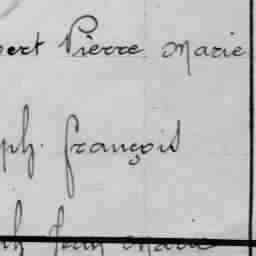 bert Pierre Marie
ph. François
ph Jean Marie